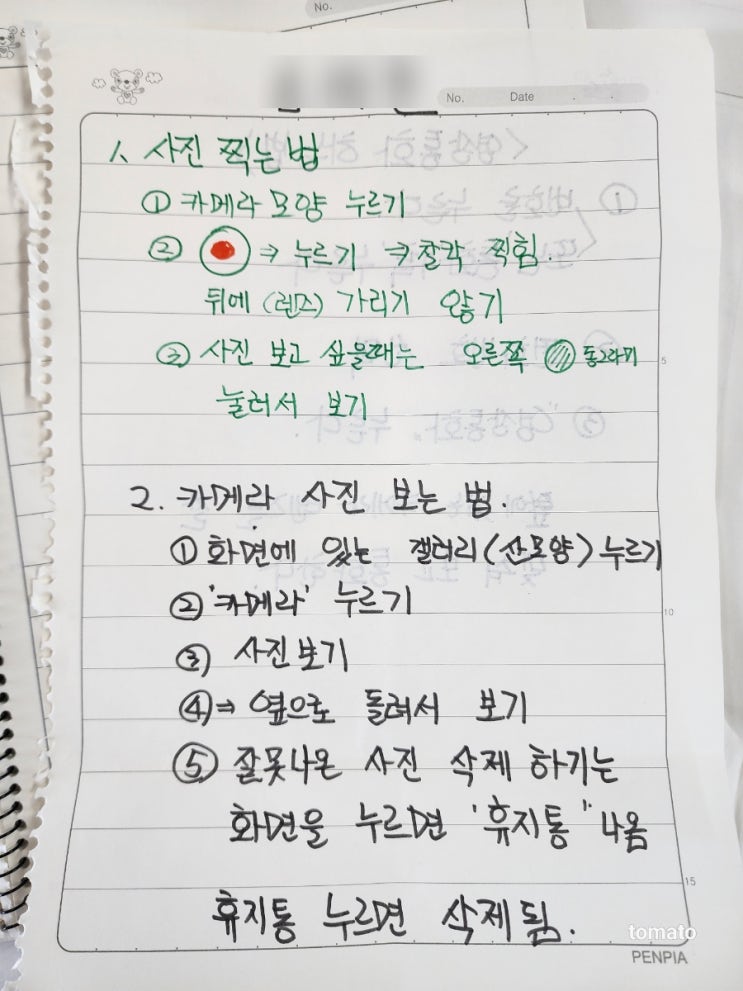 No.
No. Date . .
1. 사진 찍는 법
① 카메라 모양 누르기
② → 누르기 → 찰칵 찍힘.
뒤에 (렌즈) 가리기 않기
③ 사진 보고 싶을때는 오른쪽 동그라미
눌러서 보기
5
2. 카메라 사진 보는 법.
① 화면에 있는 갤러리 (산모양) 누르기
② '카메라' 누르기
10
③ 사진보기
④ ⇒ 옆으로 돌려서 보기
⑤ 잘못나온 사진 삭제 하기는
화면을 누르면 '휴지통' 나옴
15
휴지통 누르면 삭제 됨.
tomato
PENPIA